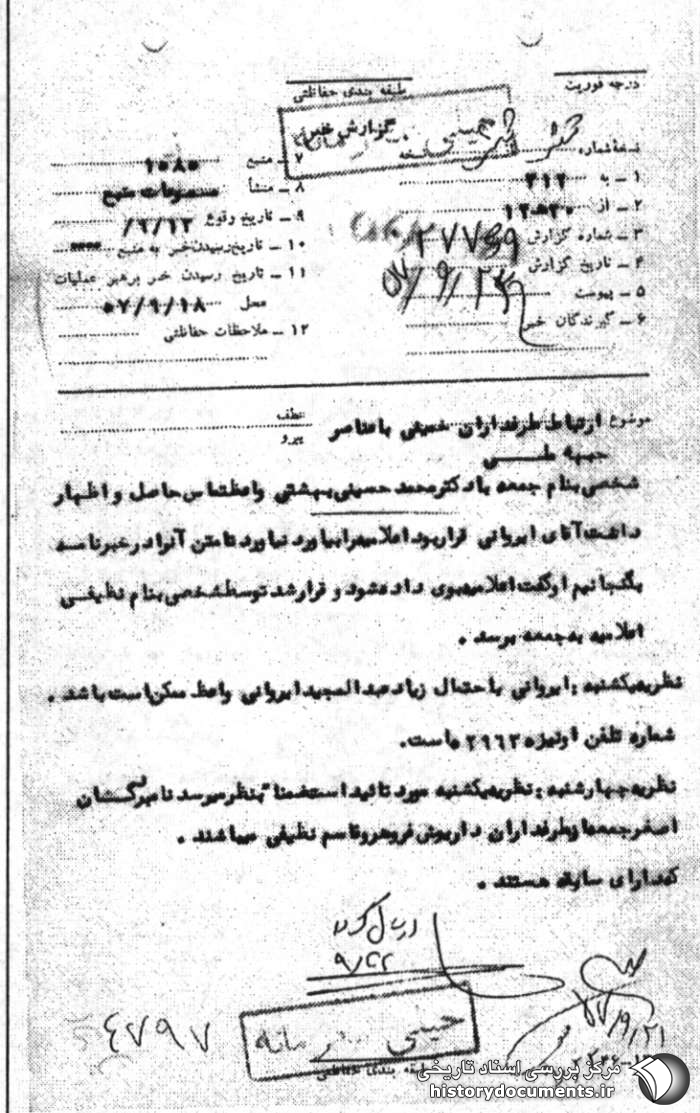 درجه فوریت
طبقه بندی حفاظتی
گزارش خبر
خیلی محرمانه
نسخه شماره
۱ ـ به ۳۱۲
۲ ـ از ۱۲ه۲۰
۳ ـ شماره گزارش
۴ ـ تاریخ گزارش ۵۷/۹/۲۳
۵ ـ پیوست
۶ ـ گیرندگان خبر
۷ ـ منبع ۱۰۸۰
۸ ـ منشأ مسموعات منبع
۹ ـ تاریخ وقوع ۹/۱۲/
۱۰ ـ تاریخ رسیدن خبر به منبع
۱۱ ـ تاریخ رسیدن خبر برهبر عملیات
محل ۵۷/۹/۱۸
۱۲ ـ ملاحظات حفاظتی
موضوع ارتباط طرفداران خمینی باعناصر
جبهه ملی
عطف
پیرو
شخصی بنام جمعه با دکتر محمد حسینی بهشتی واعظ تماس حاصل و اظهار
داشت آقای ایروانی قرار بود اعلامیه را بیاورد نیاورد تا متن آنرا در خبرنامه
بگنجانیم او گفت اعلامیه بوی داده شود و قرار شد توسط شخصی بنام نظیفی
اعلامیه به جمعه برسد .
نظریه یکشنبه : ایروانی باحتمال زیاد عبدالمجید ایروانی واعظ ممکن است باشد .
شماره تلفن او نیز ۲۹۶۲۵۰ است.
نظریه چهارشنبه : نظریه یکشنبه مورد تائید است ضمنا" بنظر میرسد نامبردگان
اصغر جمعه از طرفداران داریوش فروهر و قاسم نظیفی میباشند .
که دارای سابقه هستند .
۹/۲۲
۵۷/۹/۲۱
۴۷۹۷
خیلی محرمانه
طبقه بندی حفاظتی
مرکز بررسی اسناد تاریخی
historydocuments.ir